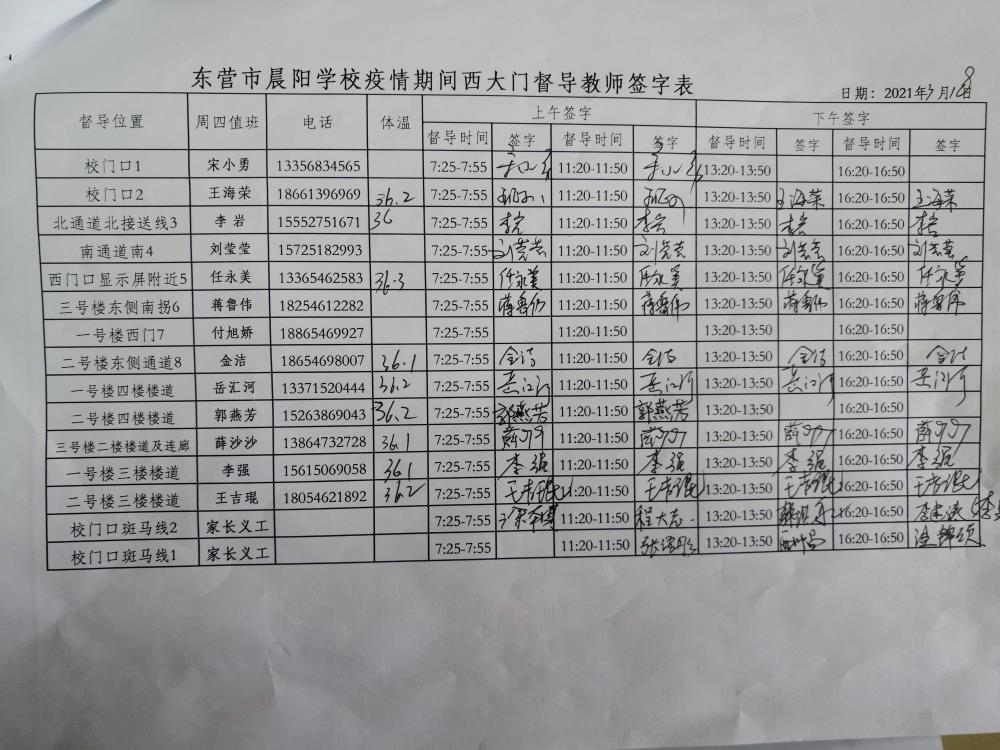 东营市晨阳学校疫情期间西大门督导教师签字表
日期：2021年3月18日
督导位置 周四值班 电话 体温 上午签字 下午签字
督导时间 签字 督导时间 签字 督导时间 签字 督导时间 签字
校门口1 宋小勇 13356834565 7:25-7:55 11:20-11:50 13:20-13:50 16:20-16:50
校门口2 王海荣 18661396969 36.2 7:25-7:55 11:20-11:50 13:20-13:50 王海荣 16:20-16:50 王海荣
北通道北接送线3 李岩 15552751671 36 7:25-7:55 李岩 11:20-11:50 李岩 13:20-13:50 李岩 16:20-16:50 李岩
南通道南4 刘莹莹 15725182993 7:25-7:55 刘莹莹 11:20-11:50 刘莹莹 13:20-13:50 刘莹莹 16:20-16:50 刘莹莹
西门口显示屏附近5 任永美 13365462583 36.3 7:25-7:55 任永美 11:20-11:50 任永美 13:20-13:50 任永美 16:20-16:50 任永美
三号楼东侧南拐6 蒋鲁伟 18254612282 7:25-7:55 蒋鲁伟 11:20-11:50 蒋鲁伟 13:20-13:50 蒋鲁伟 16:20-16:50 蒋鲁伟
一号楼西门7 付旭娇 18865469927 7:25-7:55 11:20-11:50 13:20-13:50 16:20-16:50
二号楼东侧通道8 金洁 18654698007 36.1 7:25-7:55 金洁 11:20-11:50 金洁 13:20-13:50 金洁 16:20-16:50 金洁
一号楼四楼楼道 岳汇河 13371520444 36.2 7:25-7:55 岳汇河 11:20-11:50 岳汇河 13:20-13:50 岳汇河 16:20-16:50 岳汇河
二号楼四楼楼道 郭燕芳 15263869043 36.2 7:25-7:55 郭燕芳 11:20-11:50 郭燕芳 13:20-13:50 16:20-16:50
三号楼二楼楼道及连廊 薛沙沙 13864732728 36.1 7:25-7:55 薛沙沙 11:20-11:50 薛沙沙 13:20-13:50 薛沙沙 16:20-16:50 薛沙沙
一号楼三楼楼道 李强 15615069058 36.1 7:25-7:55 李强 11:20-11:50 李强 13:20-13:50 李强 16:20-16:50 李强
二号楼三楼楼道 王吉琨 18054621892 36.2 7:25-7:55 王吉琨 11:20-11:50 王吉琨 13:20-13:50 王吉琨 16:20-16:50 王吉琨
校门口斑马线2 家长义工 7:25-7:55 11:20-11:50 程大志 13:20-13:50 16:20-16:50
校门口斑马线1 家长义工 7:25-7:55 11:20-11:50 13:20-13:50 16:20-16:50